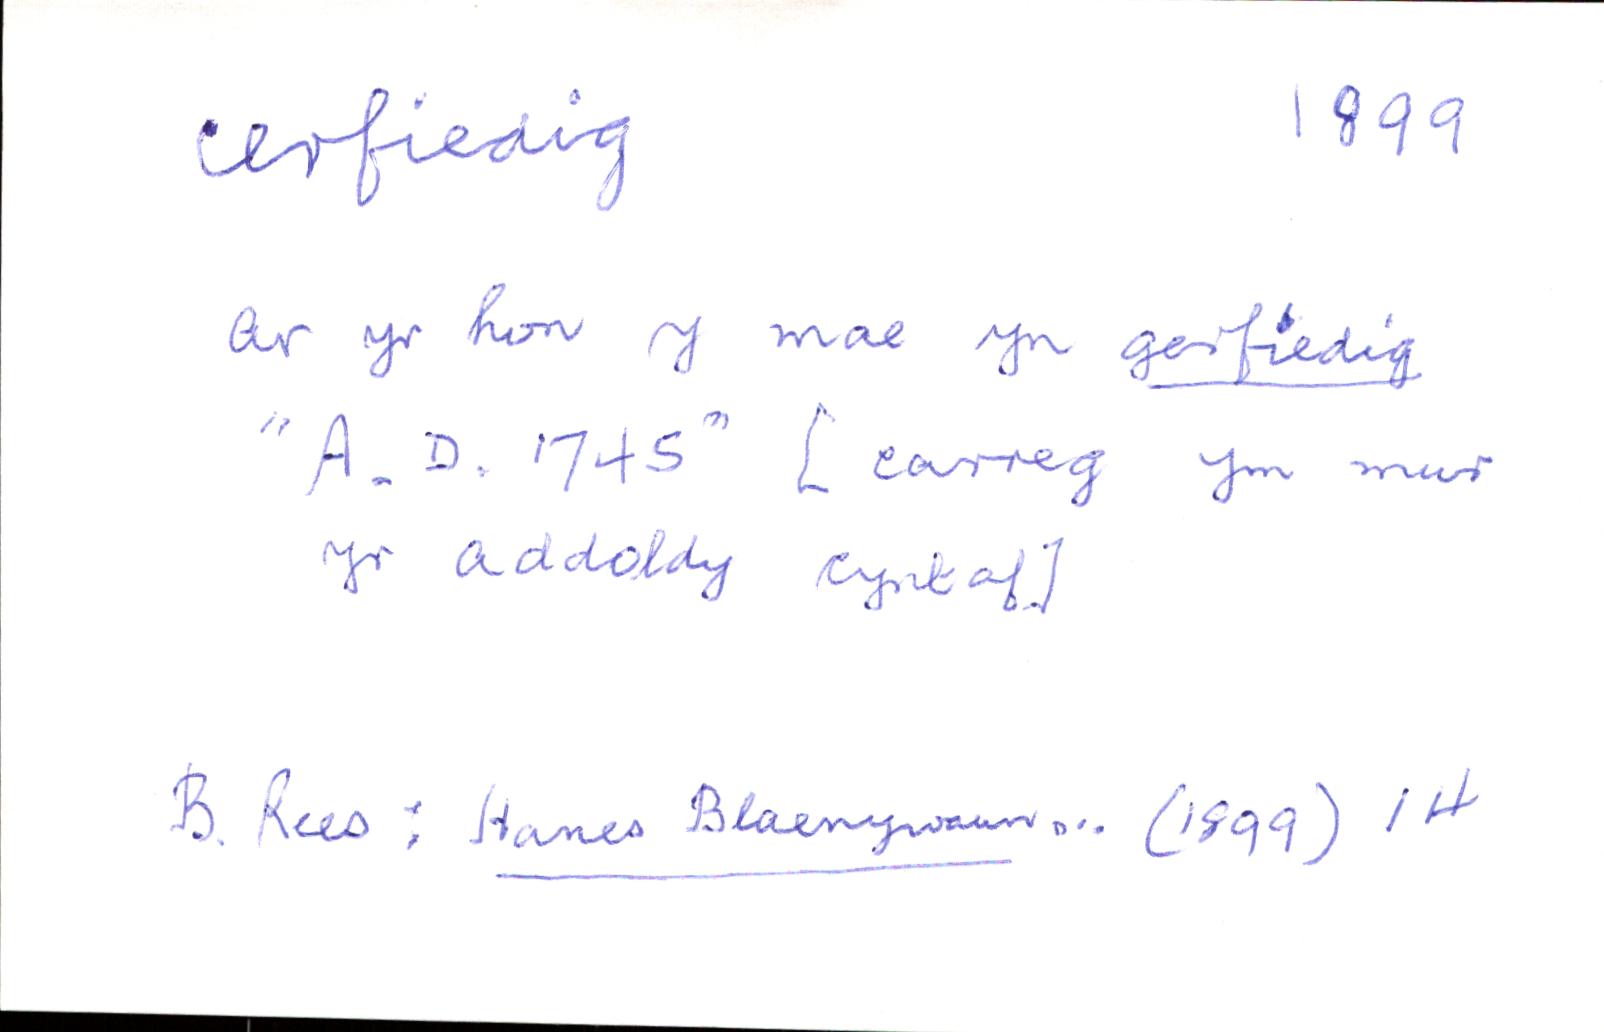 cerfiedig 1899
ar yr hon y mae yn gerfiedig
"A. D. 1745" [carreg ym mur
yr addoldy cyntaf]
B. Rees : Hanes Blaenywaun... (1899) 14